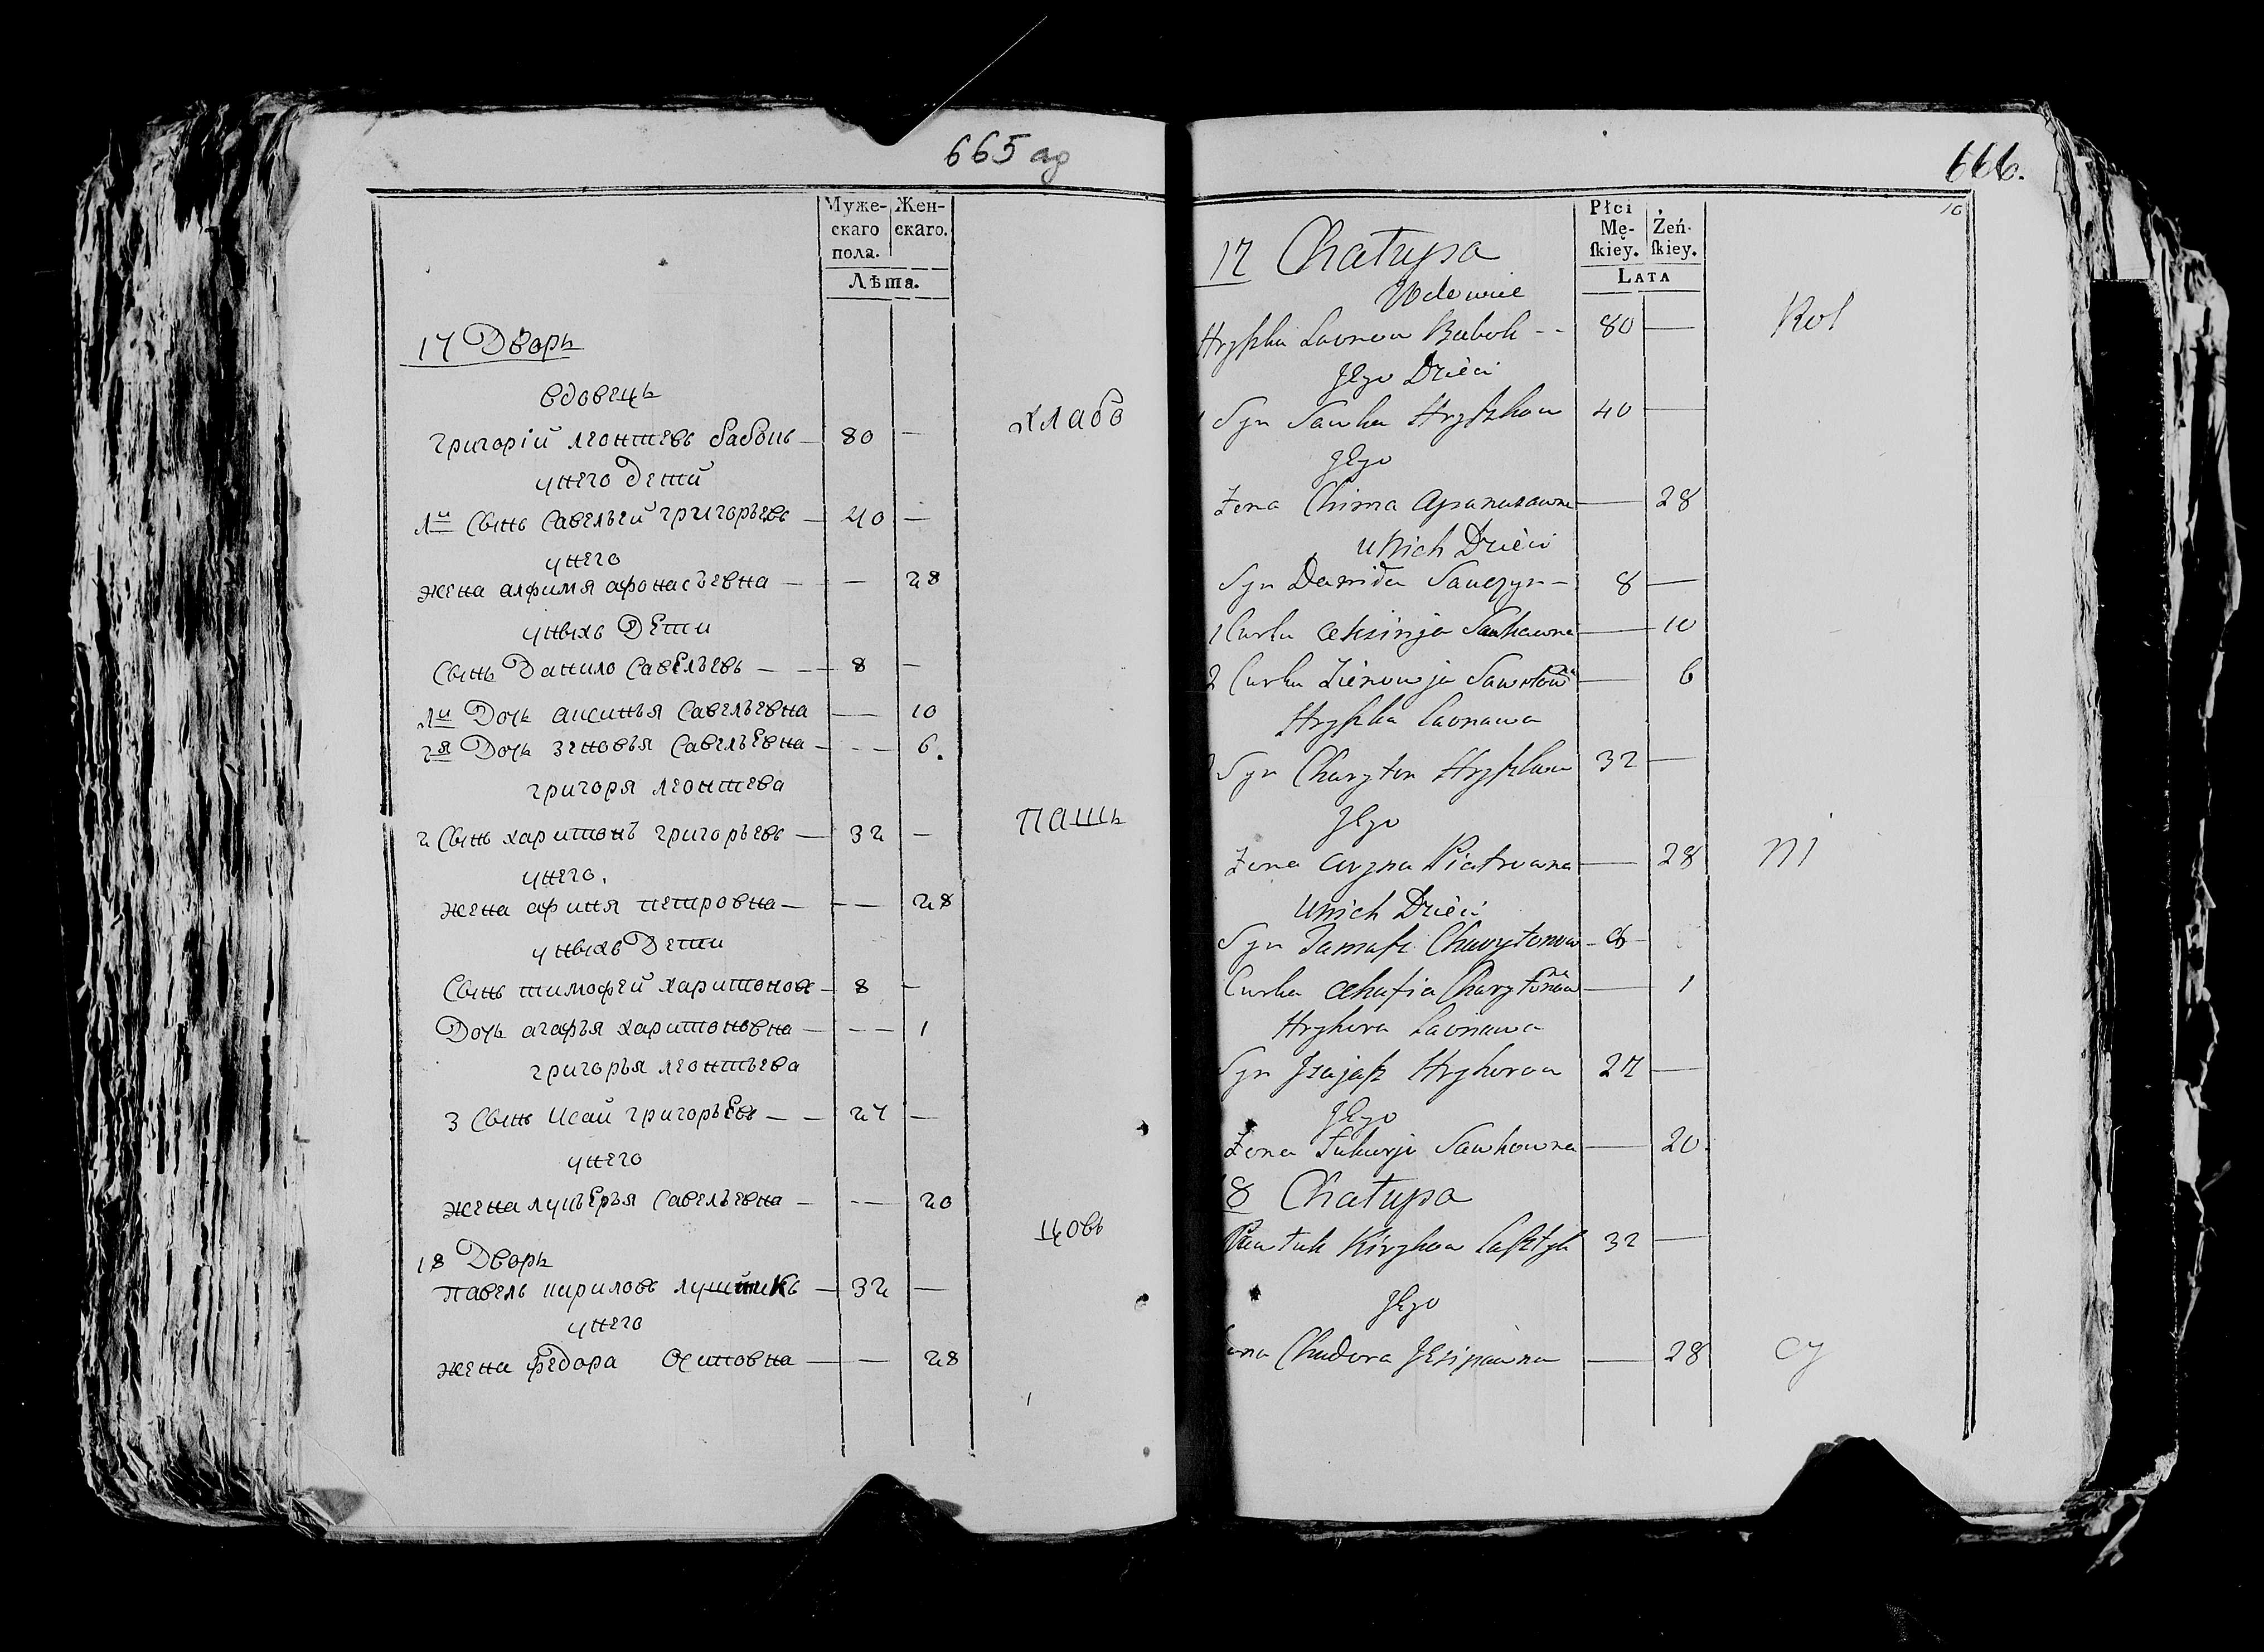 665 аd
Муже-
скаго
пола.
Жен-
скаго.
Лѣта.
17 Дворъ
вдовецъ
григорій леонтьевъ бабокъ — 80 —
унего детй
1й Сынъ Савельей григорьевъ — 40 —
унего
жена алфимя афонасъевна — — 28
унихъ Дѣти
Сынъ Данило Савельевъ — — 8 —
1я Дочь аксинья Савельевна — 10
2я Дочь зеновья Савельевна — — 6.
григоря леонтева
2 Сынъ харитонъ григорьевъ — 32 —
унего.
жена афиня петровна — — 28
унихъ Дети
Сынъ тимофей харитоновъ — 8 —
Дочь агафъя харитоновна — — 1
григорья леонтьева
3 Сынъ Исай григорьевъ — — 27 —
унего
жена лукѣръя Савельевна — — 20
18 Дворъ
павелъ кириловъ лу — 32 —
унего
жена федора Осиповна — — 28
хлабо
пашь
цовъ
666.
10
Płci
Mę-
ſkiey.
Żeń-
ſkiey.
LATA
17 Chałupa
Wdowiec
Hryſzka Laonow Babok -- 80 —
Jego Dzieci
1 Syn Sawka Hryſzkow 40 —
Jego
Żona Chima Apanasawna — 28
Unich Dzieci
Syn Daniła Sawczyn — 8 —
1 Curka Aksinja Sawkowna — 10
2 Curka Zienowja Sawkowna — 6
Hryſzka Laonawa
2 Syn Charyton Hryſzkow 32 —
Jego
Żona Piatrowna — 28
Unich Dzieci
Syn Charytonow — 8 —
Curka Ahafia Charytonowna — 1
Hryhora Laonawa
Syn Jzajaſz Hryhorow 27 —
Jego
Żona Łukerja Sawkowna — 20
18 Chałupa
Pawluk Kirykow 32 —
Jego
Żona Chudora Jesipawna — 28
Rol
ni
cy